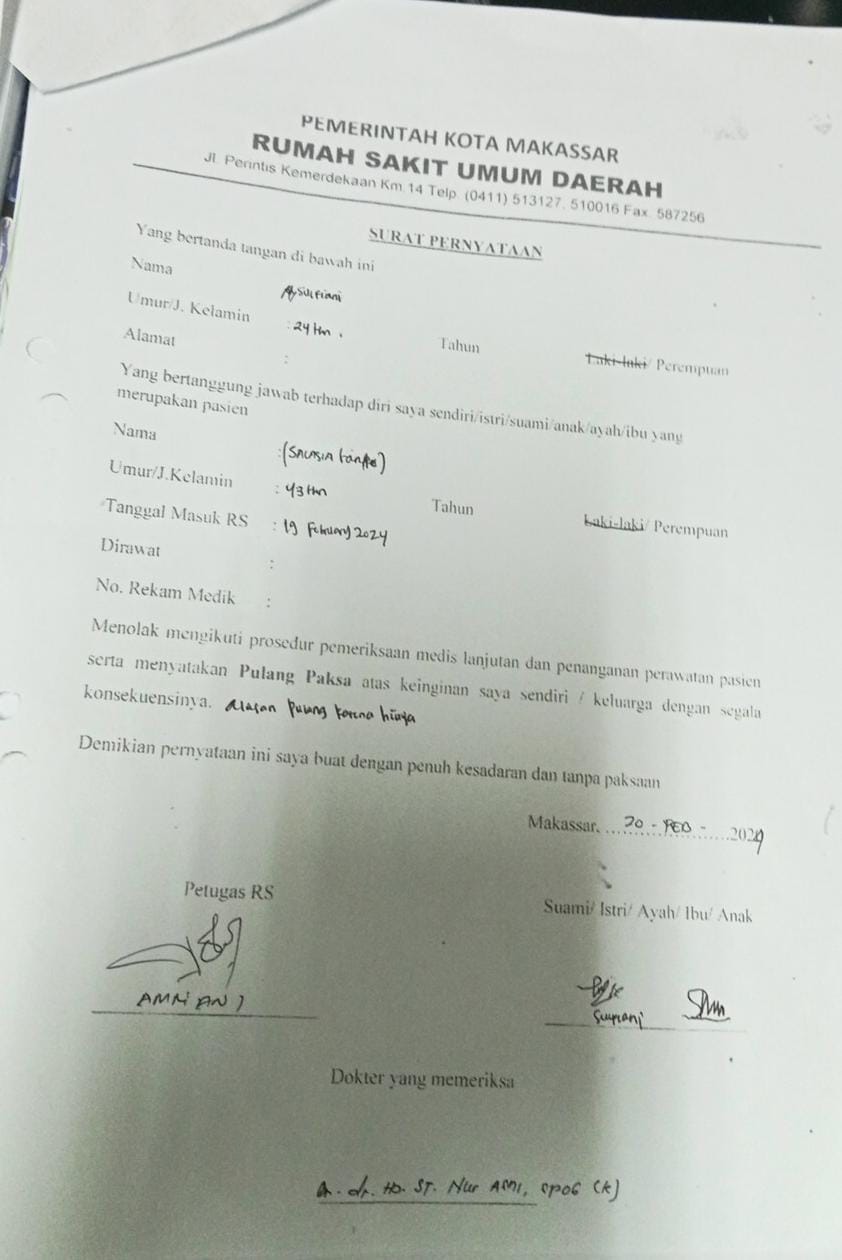 PEMERINTAH KOTA MAKASSAR
RUMAH SAKIT UMUM DAERAH
Jl. Perintis Kemerdekaan Km.14 Telp. (0411) 513127, 510016 Fax. 587256
SURAT PERNYATAAN
Yang bertanda tangan di bawah ini
Nama
Umur/J. Kelamin : 24 thn. Tahun Laki-laki/ Perempuan
Alamat :
Yang bertanggung jawab terhadap diri saya sendiri/istri/suami/anak/ayah/ibu yang
merupakan pasien
Nama :(
Umur/J.Kelamin : 43 thn Tahun Laki-laki/ Perempuan
Tanggal Masuk RS : 19 February 2024
Dirawat :
No. Rekam Medik :
Menolak mengikuti prosedur pemeriksaan medis lanjutan dan penanganan perawatan pasien
serta menyatakan Pulang Paksa atas keinginan saya sendiri / keluarga dengan segala
konsekuensinya. Alasan pulang karena
Demikian pernyataan ini saya buat dengan penuh kesadaran dan tanpa paksaan
Makassar, 20 - FEB - 2024
Petugas RS Suami/ Istri/ Ayah/ Ibu/ Anak
AMRIANI
Dokter yang memeriksa
dr. Hj. ST. Nur Asni, SPOG (K)